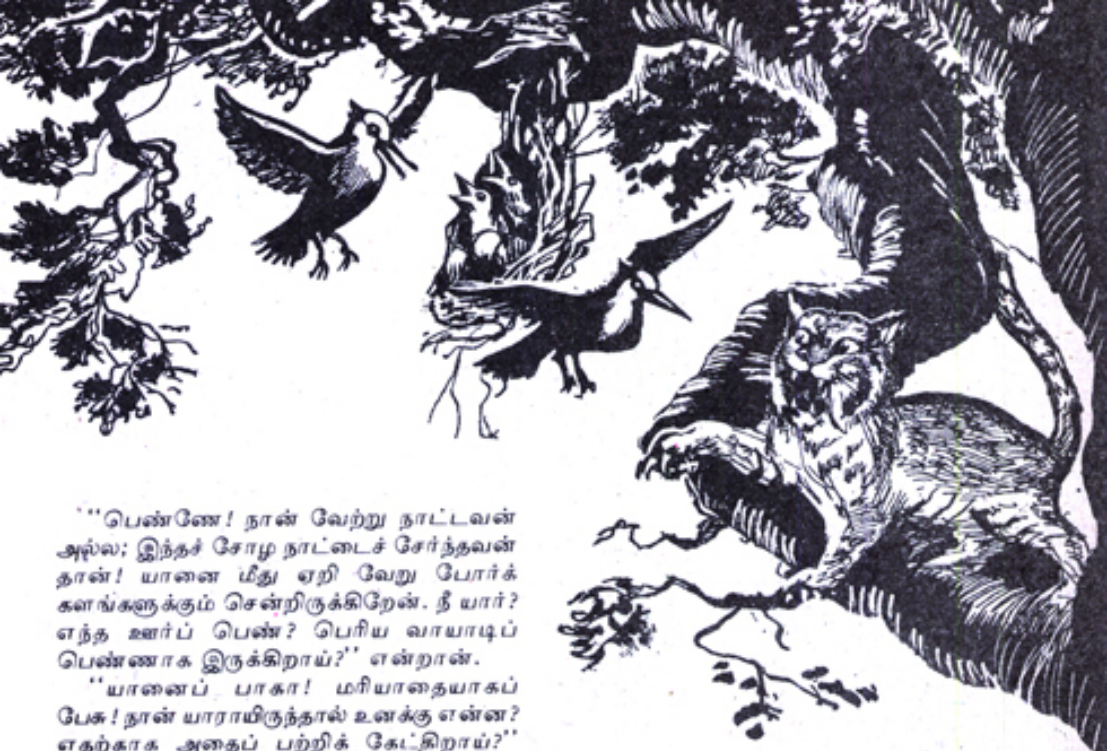 `"பெண்ணே! நான் வேற்று நாட்டவன்
அல்ல; இந்தச் சோழ நாட்டைச் சேர்ந்தவன்
தான்! யானை மீது ஏறி வேறு போர்க்
களங்களுக்கும் சென்றிருக்கிறேன். நீ யார்?
எந்த ஊர்ப் பெண்? பெரிய வாயாடிப்
பெண்ணாக இருக்கிறாய்?" என்றான்.
"யானைப் பாகா! மரியாதையாகப்
பேசு! நான் யாராயிருந்தால் உனக்கு என்ன?
எதற்காக அதைப் பற்றிக் கேட்கிறாய்?"